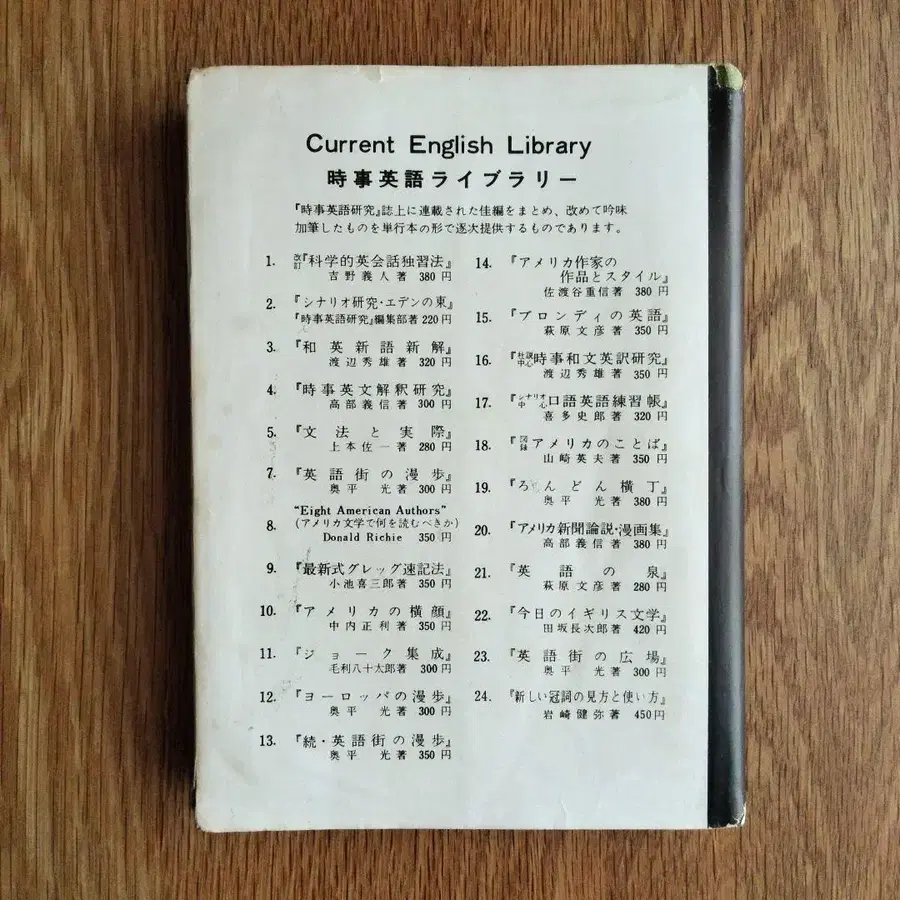 Current English Library
時事英語ライブラリー
『時事英語研究』誌上に連載された佳編をまとめ、改めて吟味
加筆したものを単行本の形で逐次提供するものであります。
1. 改訂『科学的英会話独習法』
吉野義人著 380円
2. 『シナリオ研究・エデンの東』
『時事英語研究』編集部著 220円
3. 『和英新語新解』
渡辺秀雄著 320円
4. 『時事英文解釈研究』
高部義信著 300円
5. 『文法と実際』
上本佐一著 280円
7. 『英語街の漫歩』
奥平光著 300円
8. “Eight American Authors”
(アメリカ文学で何を読むべきか)
Donald Richie 350円
9. 『最新式グレッグ速記法』
小池喜三郎著 350円
10. 『アメリカの横顔』
中内正利著 350円
11. 『ジョーク集成』
毛利八十太郎著 300円
12. 『ヨーロッパの漫歩』
奥平光著 300円
13. 『続・英語街の漫歩』
奥平光著 350円
14. 『アメリカ作家の
作品とスタイル』
佐渡谷重信著 380円
15. 『ブロンディの英語』
萩原文彦著 350円
16. 『社説中心時事和文英訳研究』
渡辺秀雄著 350円
17. 『シナリオ中心口語英語練習帳』
喜多史郎著 320円
18. 『図録アメリカのことば』
山崎英夫著 350円
19. 『ろんどん横丁』
奥平光著 380円
20. 『アメリカ新聞論説・漫画集』
高部義信著 380円
21. 『英語の泉』
萩原文彦著 280円
22. 『今日のイギリス文学』
田坂長次郎著 420円
23. 『英語街の広場』
奥平光著 300円
24. 『新しい冠詞の見方と使い方』
岩崎健弥著 450円